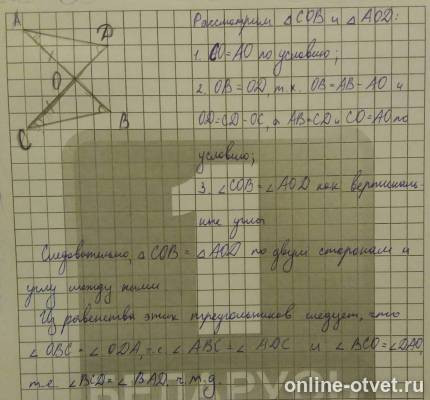 A
D
O
C
B
Рассмотрим △COB и △AOD:
1. CO=AO по условию;
2. OB=OD, т.к. OB=AB-AO и
OD=CD-OC, а AB=CD и CO=AO по
условию;
3. ∠COB=∠AOD как вертикаль-
ные углы
Следовательно, △COB = △AOD по двум сторонам и
углу между ними
Из равенства этих треугольников следует, что
∠OBC=∠ODA, т.е. ∠ABC=∠ADC и ∠BCO=∠DAO,
т.е. ∠BCD=∠BAD. ч.т.д.
1
БЕЛАРУСЬ
online-otvet.ru